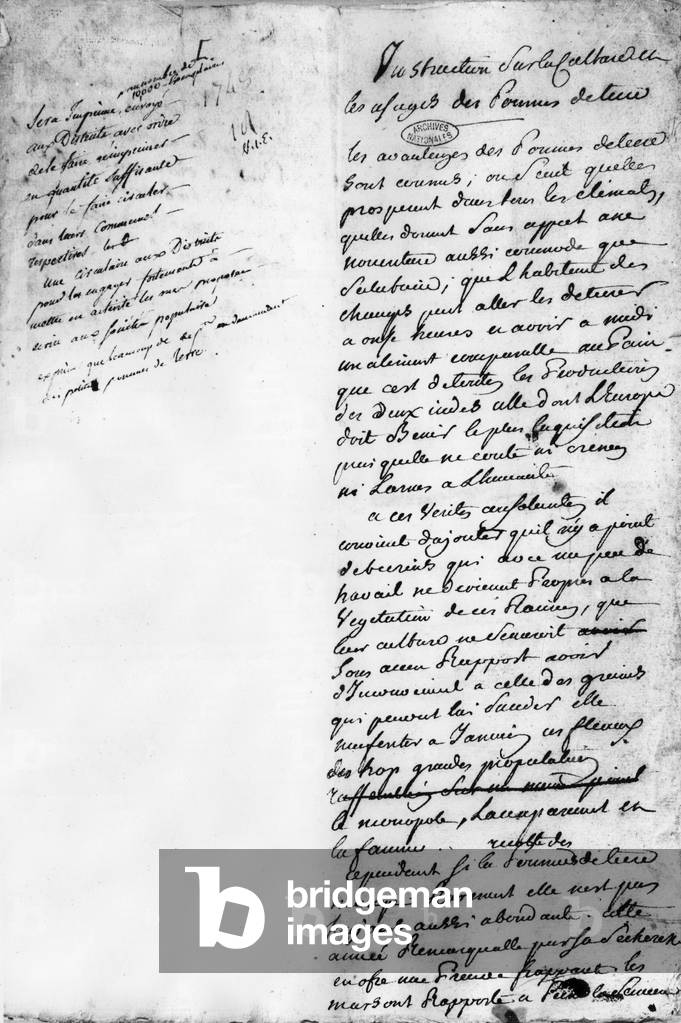 nombre de
10000 Exemplaires
Sera Imprimé, envoyé
aux Districts avec ordre
de le faire réimprimer
en quantité suffisante
pour le faire circuler
dans leurs communes
respectives
une circulaire aux Districts
pour les engager fortement à
mettre en activité les
aux Société populaire
que beaucoup de en demandent
des petites pommes de Terre.
I
1743
Instruction Sur la Culture et
les usages des Pommes de terre
ARCHIVES
NATIONALES
les avantages des Pommes de terre
sont connus; on Scait quelles
prosperent dans tous les climats,
quelles donnent Sans appret une
nouriture aussi commode que
Salubre; que L'habitant des
champs peut aller les deterrer
a onse heures et avoir a midi
un aliment comparable au Pain
que c'est de toutes les Productions
des deux indes celle dont L'Europe
doit Benir le plus
puis quelle ne coute ni crimes
ni Larmes a L'humanité
a ces Verités consolantes il
convient d'ajouter quil n'y a point
de terreins qui avec un peu de
travail ne devienent Propres a la
Vegetation de ces Racines, que
leur culture ne Scauroit avoir
Sous aucun Rapport avoir
d'Inconvenient a celle des grains
qui peuvent lui Succeder elle
a Jamais ces fleaux
des trop grandes propriétaires
le monopole, L'accaparement et
la famine.
recolte des
Cependant Si la Pommes de terre
elle nest pas
aussi abondante. cette
année Remarquable par Sa Secheresse
en ofre une Preuve frappant les
mars ont Rapporté a
bridgeman
images
b